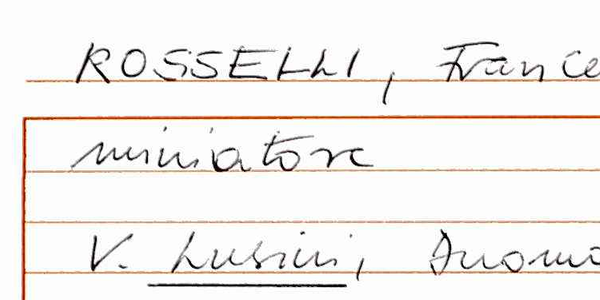 ROSSELLI, France
miniatore
V. Lusini, Duomo